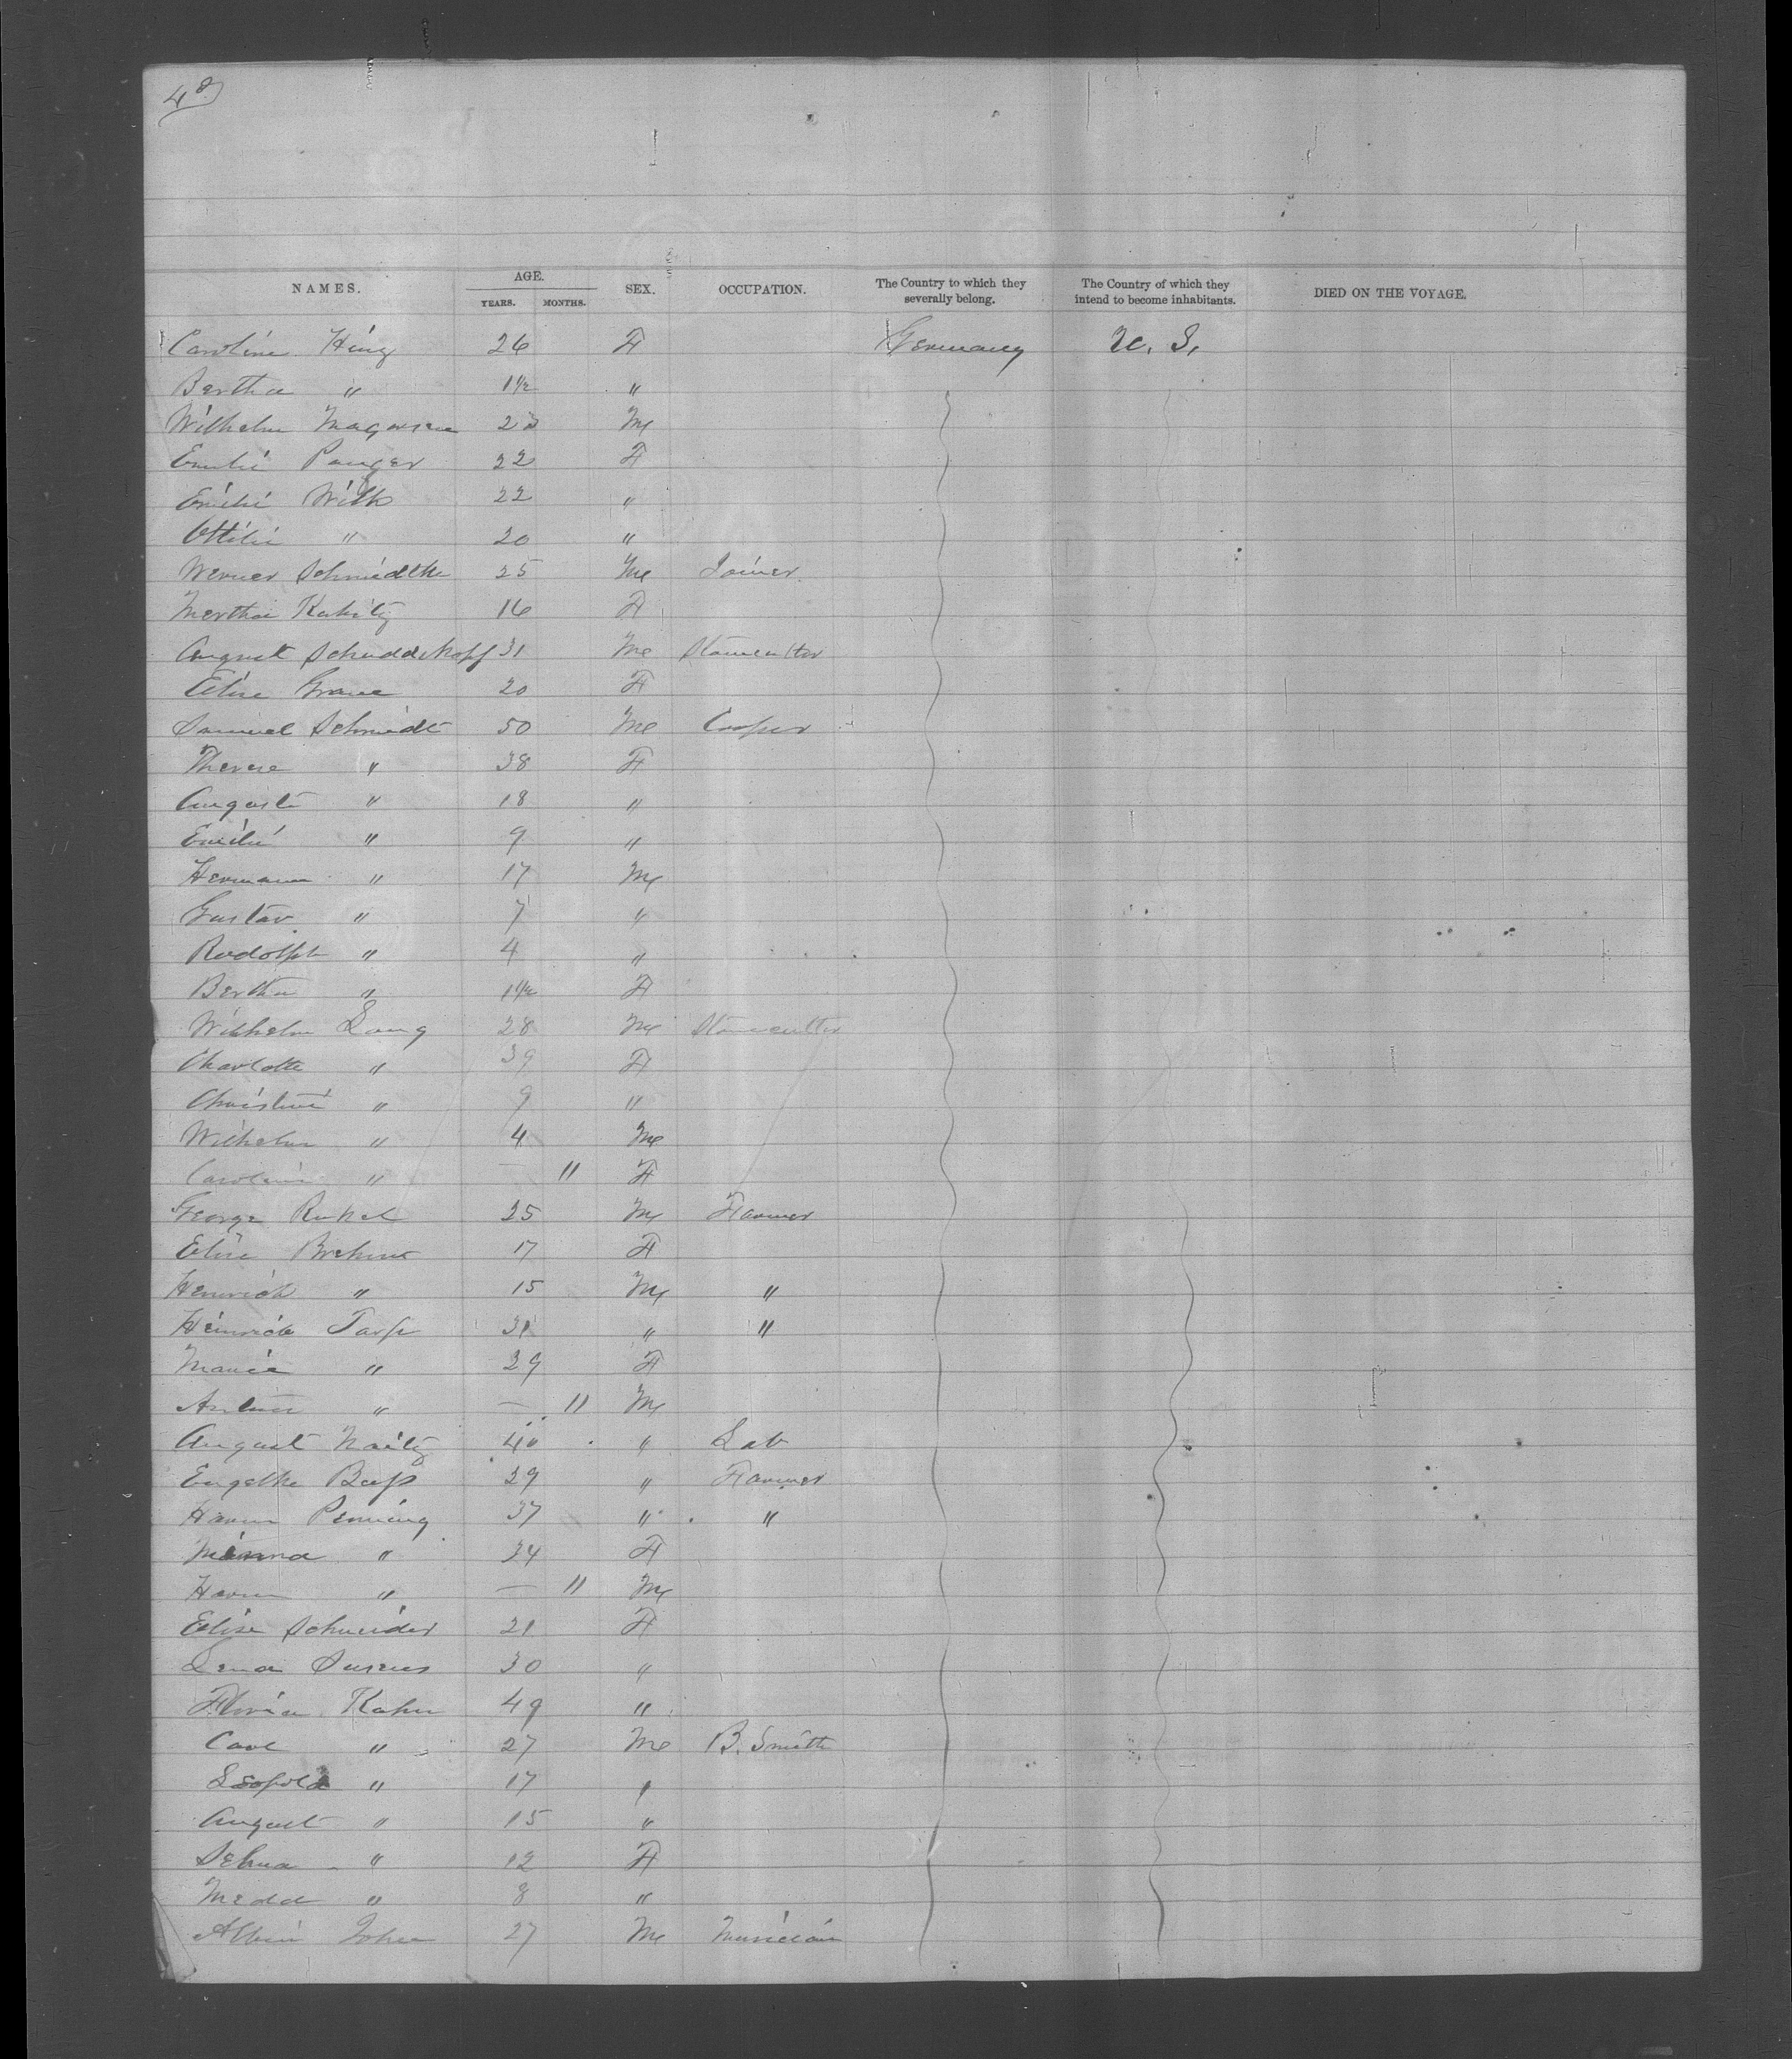 48
NAMES. AGE. YEARS. MONTHS. SEX. OCCUPATION. The Country to which they severally belong. The Country of which they intend to become inhabitants. DIED ON THE VOYAGE.
Caroline Hing 26 F Germany U. S.
Bertha " 1½ "
Wilhelm 23 M
Emilie Panger 22 F
Emilie Wilk 22 "
Ottilie " 20 "
Werner Schmidtke 25 M Joiner
Mertha 16 F
August Schuddekopf 31 M Stonecutter
Elise Grane 20 F
Samuel Schmidt 50 M Cooper
Therese " 38 F
Auguste " 18 "
Emilie " 9 "
Hermann " 17 M
Gustav " 7 "
Rudolph " 4 "
Bertha " 1½ F
Wilhelm Lang 28 M Stonecutter
Charlotte " 39 F
Christine " 9 "
Wilhelm " 4 M
Caroline " — 11 F
George 25 M Farmer
Elise Brehme 17 F
Heinrich " 15 M "
Heinrich 31 " "
Marie " 29 F
" — 11 M
August 40 " Lab
29 " Farmer
Harm Penning 37 " "
Minna " 34 F
Harm " — 11 M
Elise Schneider 21 F
Lena 30 "
Kahn 49 "
Carl " 27 M B. Smith
Leopold " 17 "
August " 15 "
Selma " 12 F
" 8 "
Albin John 27 M Musician